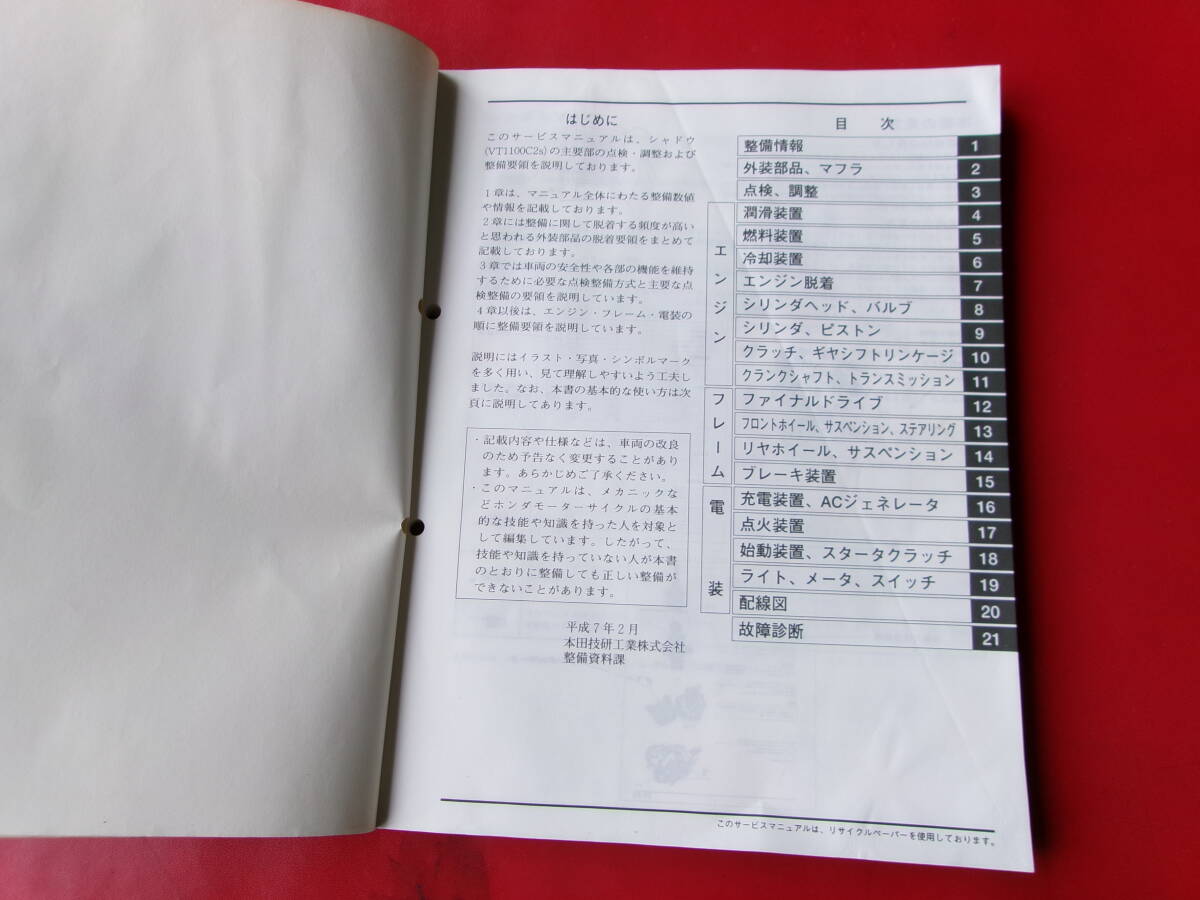 はじめに
このサービスマニュアルは、シャドウ
(VT1100C2s)の主要部の点検・調整および
整備要領を説明しております。
1章は、マニュアル全体にわたる整備数値
や情報を記載しております。
2章には整備に関して脱着する頻度が高い
と思われる外装部品の脱着要領をまとめて
記載しております。
3章では車両の安全性や各部の機能を維持
するために必要な点検整備方式と主要な点
検整備の要領を説明しています。
4章以後は、エンジン・フレーム・電装の
順に整備要領を説明しています。
説明にはイラスト・写真・シンボルマーク
を多く用い、見て理解しやすいよう工夫し
ました。なお、本書の基本的な使い方は次
頁に説明してあります。
・記載内容や仕様などは、車両の改良
のため予告なく変更することがあり
ます。あらかじめご了承ください。
・このマニュアルは、メカニックな
どホンダモーターサイクルの基本
的な技能や知識を持った人を対象と
して編集しています。したがって、
技能や知識を持っていない人が本書
のとおりに整備しても正しい整備が
できないことがあります。
平成7年2月
本田技研工業株式会社
整備資料課
目 次
整備情報 1
外装部品、マフラ 2
点検、調整 3
エンジン
潤滑装置 4
燃料装置 5
冷却装置 6
エンジン脱着 7
シリンダヘッド、バルブ 8
シリンダ、ピストン 9
クラッチ、ギヤシフトリンケージ 10
クランクシャフト、トランスミッション 11
フレーム
ファイナルドライブ 12
フロントホイール、サスペンション、ステアリング 13
リヤホイール、サスペンション 14
ブレーキ装置 15
電装
充電装置、ACジェネレータ 16
点火装置 17
始動装置、スタータクラッチ 18
ライト、メータ、スイッチ 19
配線図 20
故障診断 21
このサービスマニュアルは、リサイクルペーパーを使用しております。